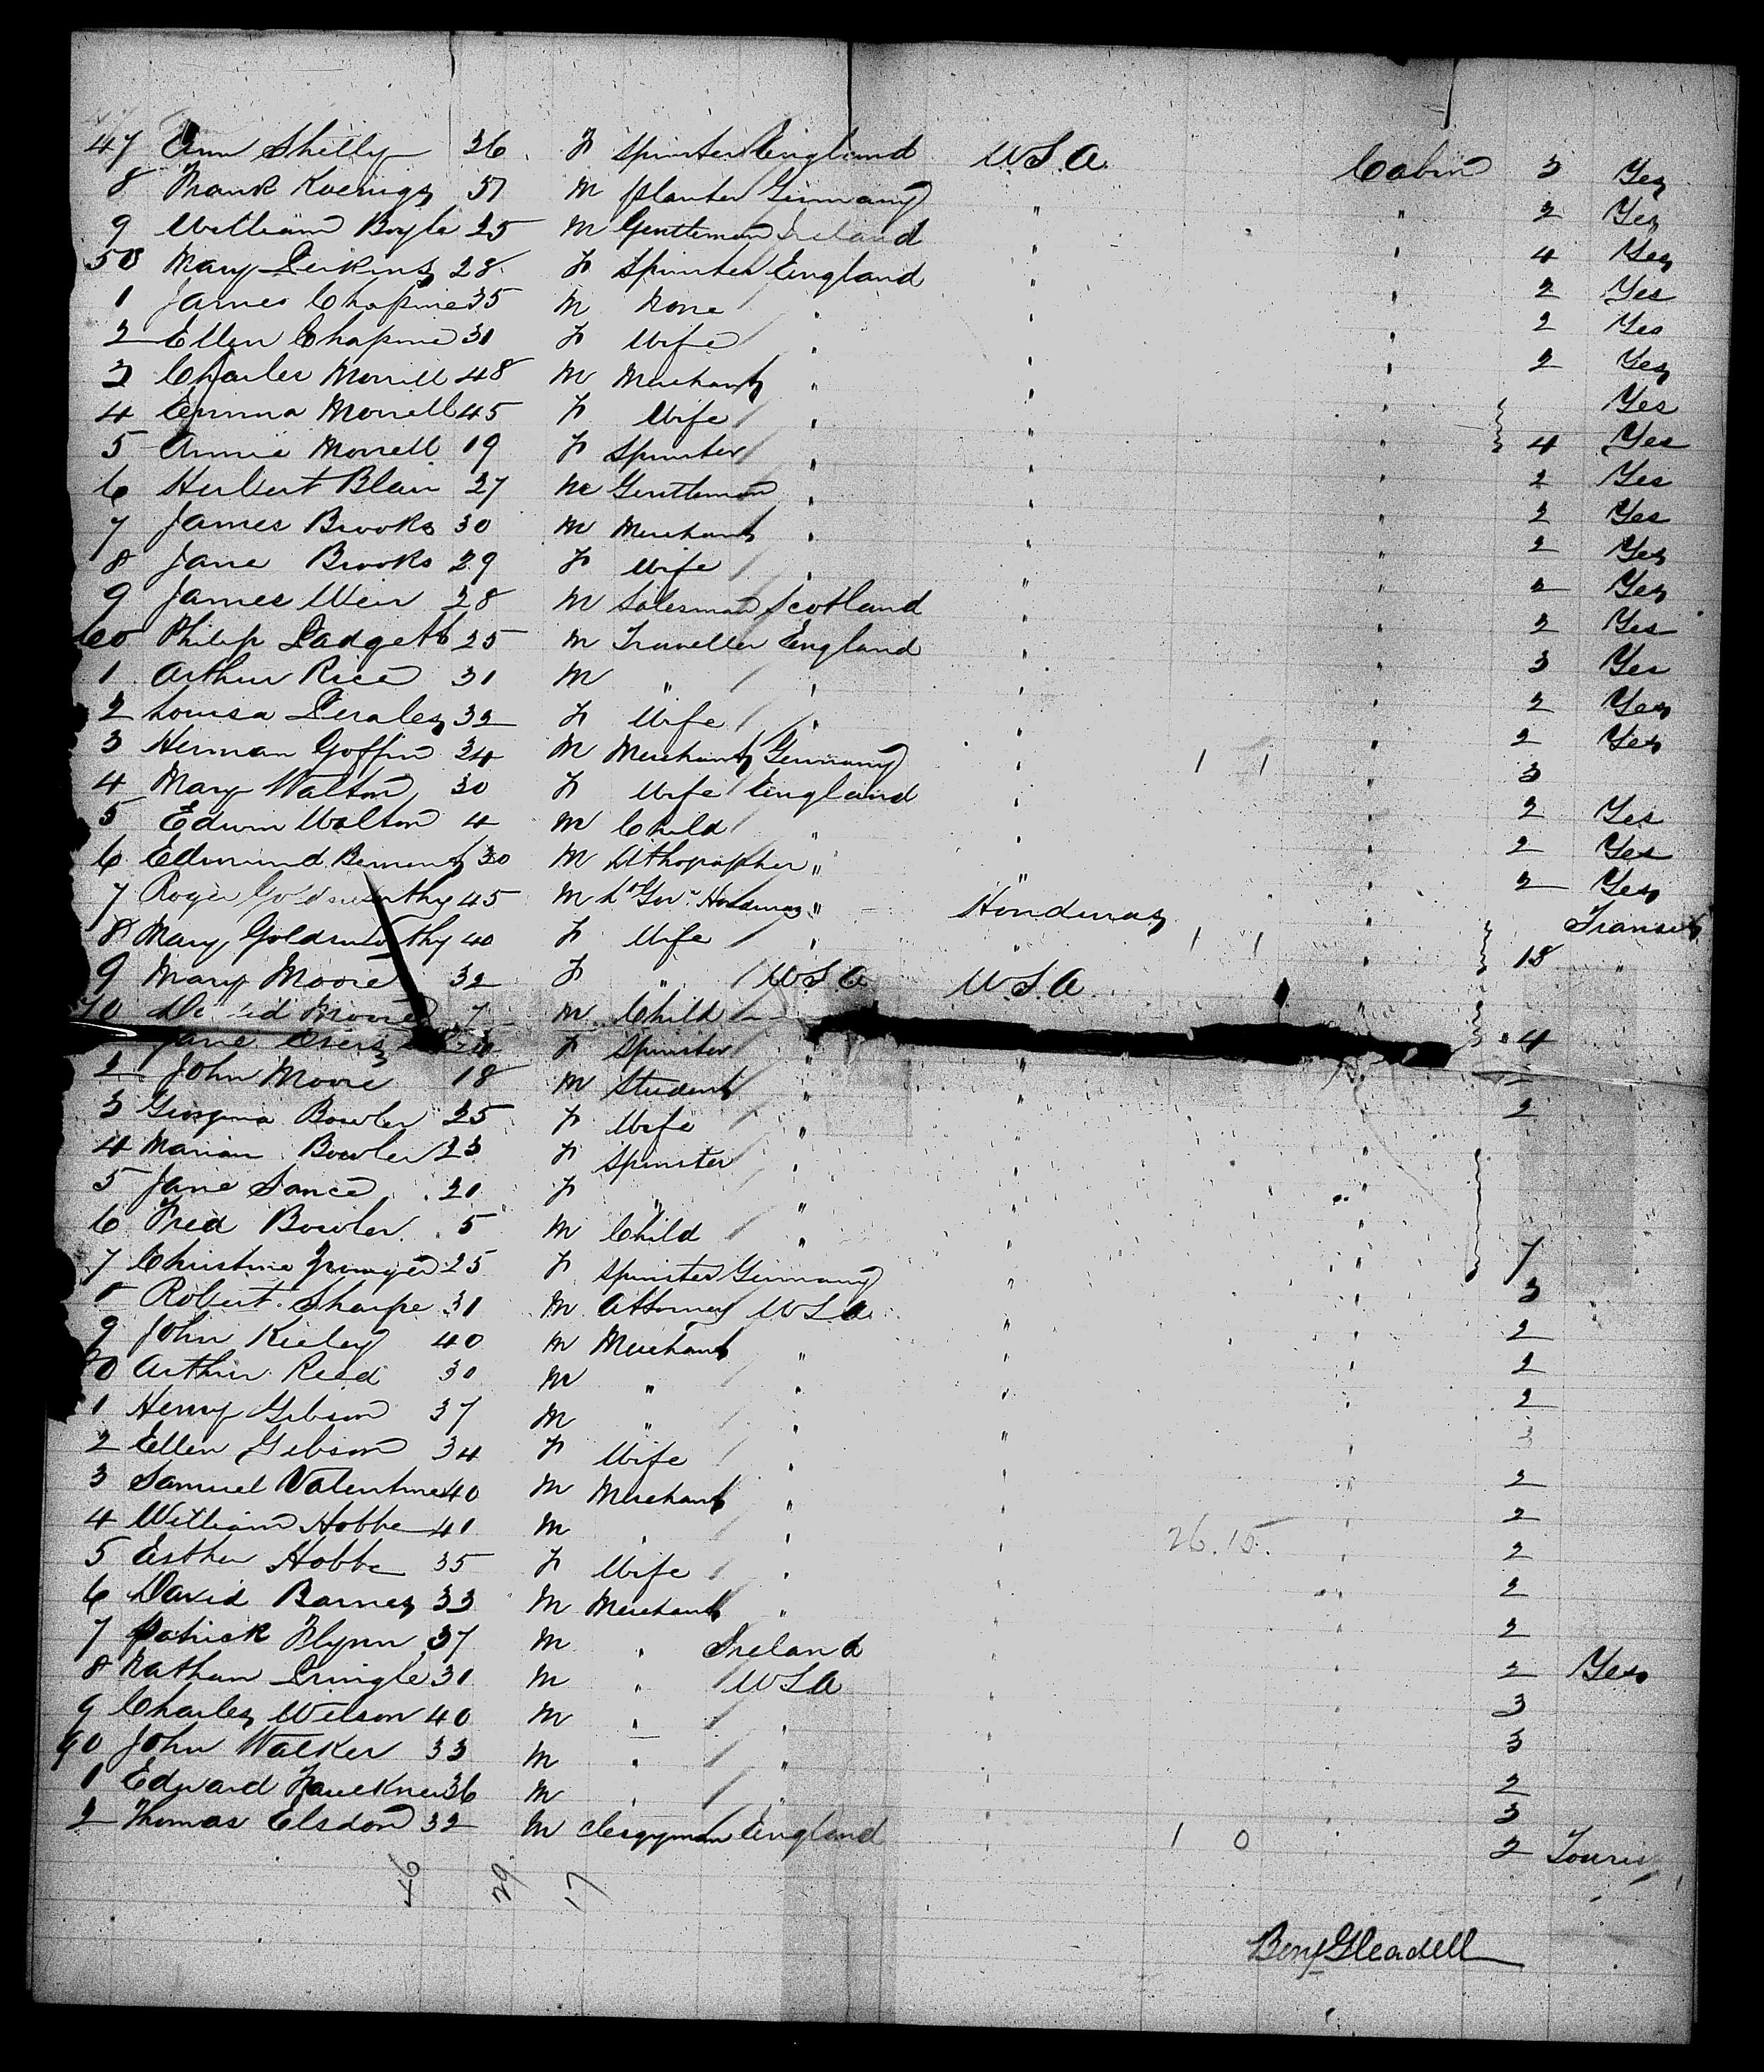 47 Ann Shelly 26 F Spinster England U.S.A. Cabin 3 Yes
8 Frank Koenigs 57 M Planter Germany " " 2 Yes
9 William Boyle 25 M Gentleman Ireland " " 4 Yes
50 Mary Perkins 28 F Spinster England " " 2 Yes
1 James Chapine 35 M None " " " 2 Yes
2 Ellen Chapine 30 F Wife " " " 2 Yes
3 Charles Morrell 48 M Merchant " " " Yes
4 Emma Morrell 45 F Wife " " " Yes
5 Annie Morrell 19 F Spinster " " " 4 Yes
6 Herbert Blair 27 M Gentleman " " " 2 Yes
7 James Brooks 30 M Merchant " " " 2 Yes
8 Jane Brooks 29 F Wife " " " 2 Yes
9 James Weir 28 M Salesman Scotland " " 2 Yes
60 Philip Padgett 25 M Traveller England " " 2 Yes
1 Arthur Rice 31 M " " " " 3 Yes
2 Louisa 32 F Wife " " " 2 Yes
3 Herman Goffin 24 M Merchant Germany " 1 1 " 2 Yes
4 Mary Walton 30 F Wife England " " 3
5 Edwin Walton 4 M Child " " " 2 Yes
6 Edmund 30 M Lithographer " " " 2 Yes
7 Roger Goldsworthy 45 M Lt Gov. Honduras " Honduras " 2 Yes
8 Mary Goldsworthy 40 F Wife " " 1 1 " Transit
9 Mary Moore 32 F " U.S.A. U.S.A. 18 "
70 Moore 7 M Child "
Jane F Spinster " " 4
2 John Moore 18 M Student " " 2
3 Georgina Bowler 25 F Wife " " 2
4 Marian Bowler 23 F Spinster " " "
5 Jane Sance 20 F " " " "
6 Fred Bowler 5 M Child " " "
7 Christine 25 F Spinster Germany " " 7
8 Robert Sharpe 31 M Attorney U.S.A. " " 3
9 John Kieley 40 M Merchant " " " 2
80 Arthur Reed 30 M " " " " 2
1 Henry Gibson 37 M " " " " 2
2 Ellen Gibson 34 F Wife " " " 3
3 Samuel Valentine 40 M Merchant " " " 2
4 William Hobbe 41 M " " " 26.15. " 2
5 Esther Hobbe 35 F Wife " " " 2
6 David Barnes 33 M Merchant " " " 2
7 Patrick Flynn 37 M " Ireland " " 2
8 Nathan Pringle 30 M " U.S.A " " 2 Yes
9 Charles Wilson 40 M " " " " 3
90 John Walker 33 M " " " " 3
1 Edward Faulkner 36 M " " " " 2
2 Thomas Elsdon 32 M Clergyman England " 1 0 " 3
2 Tourist
46 29 17
Benj Gleadell